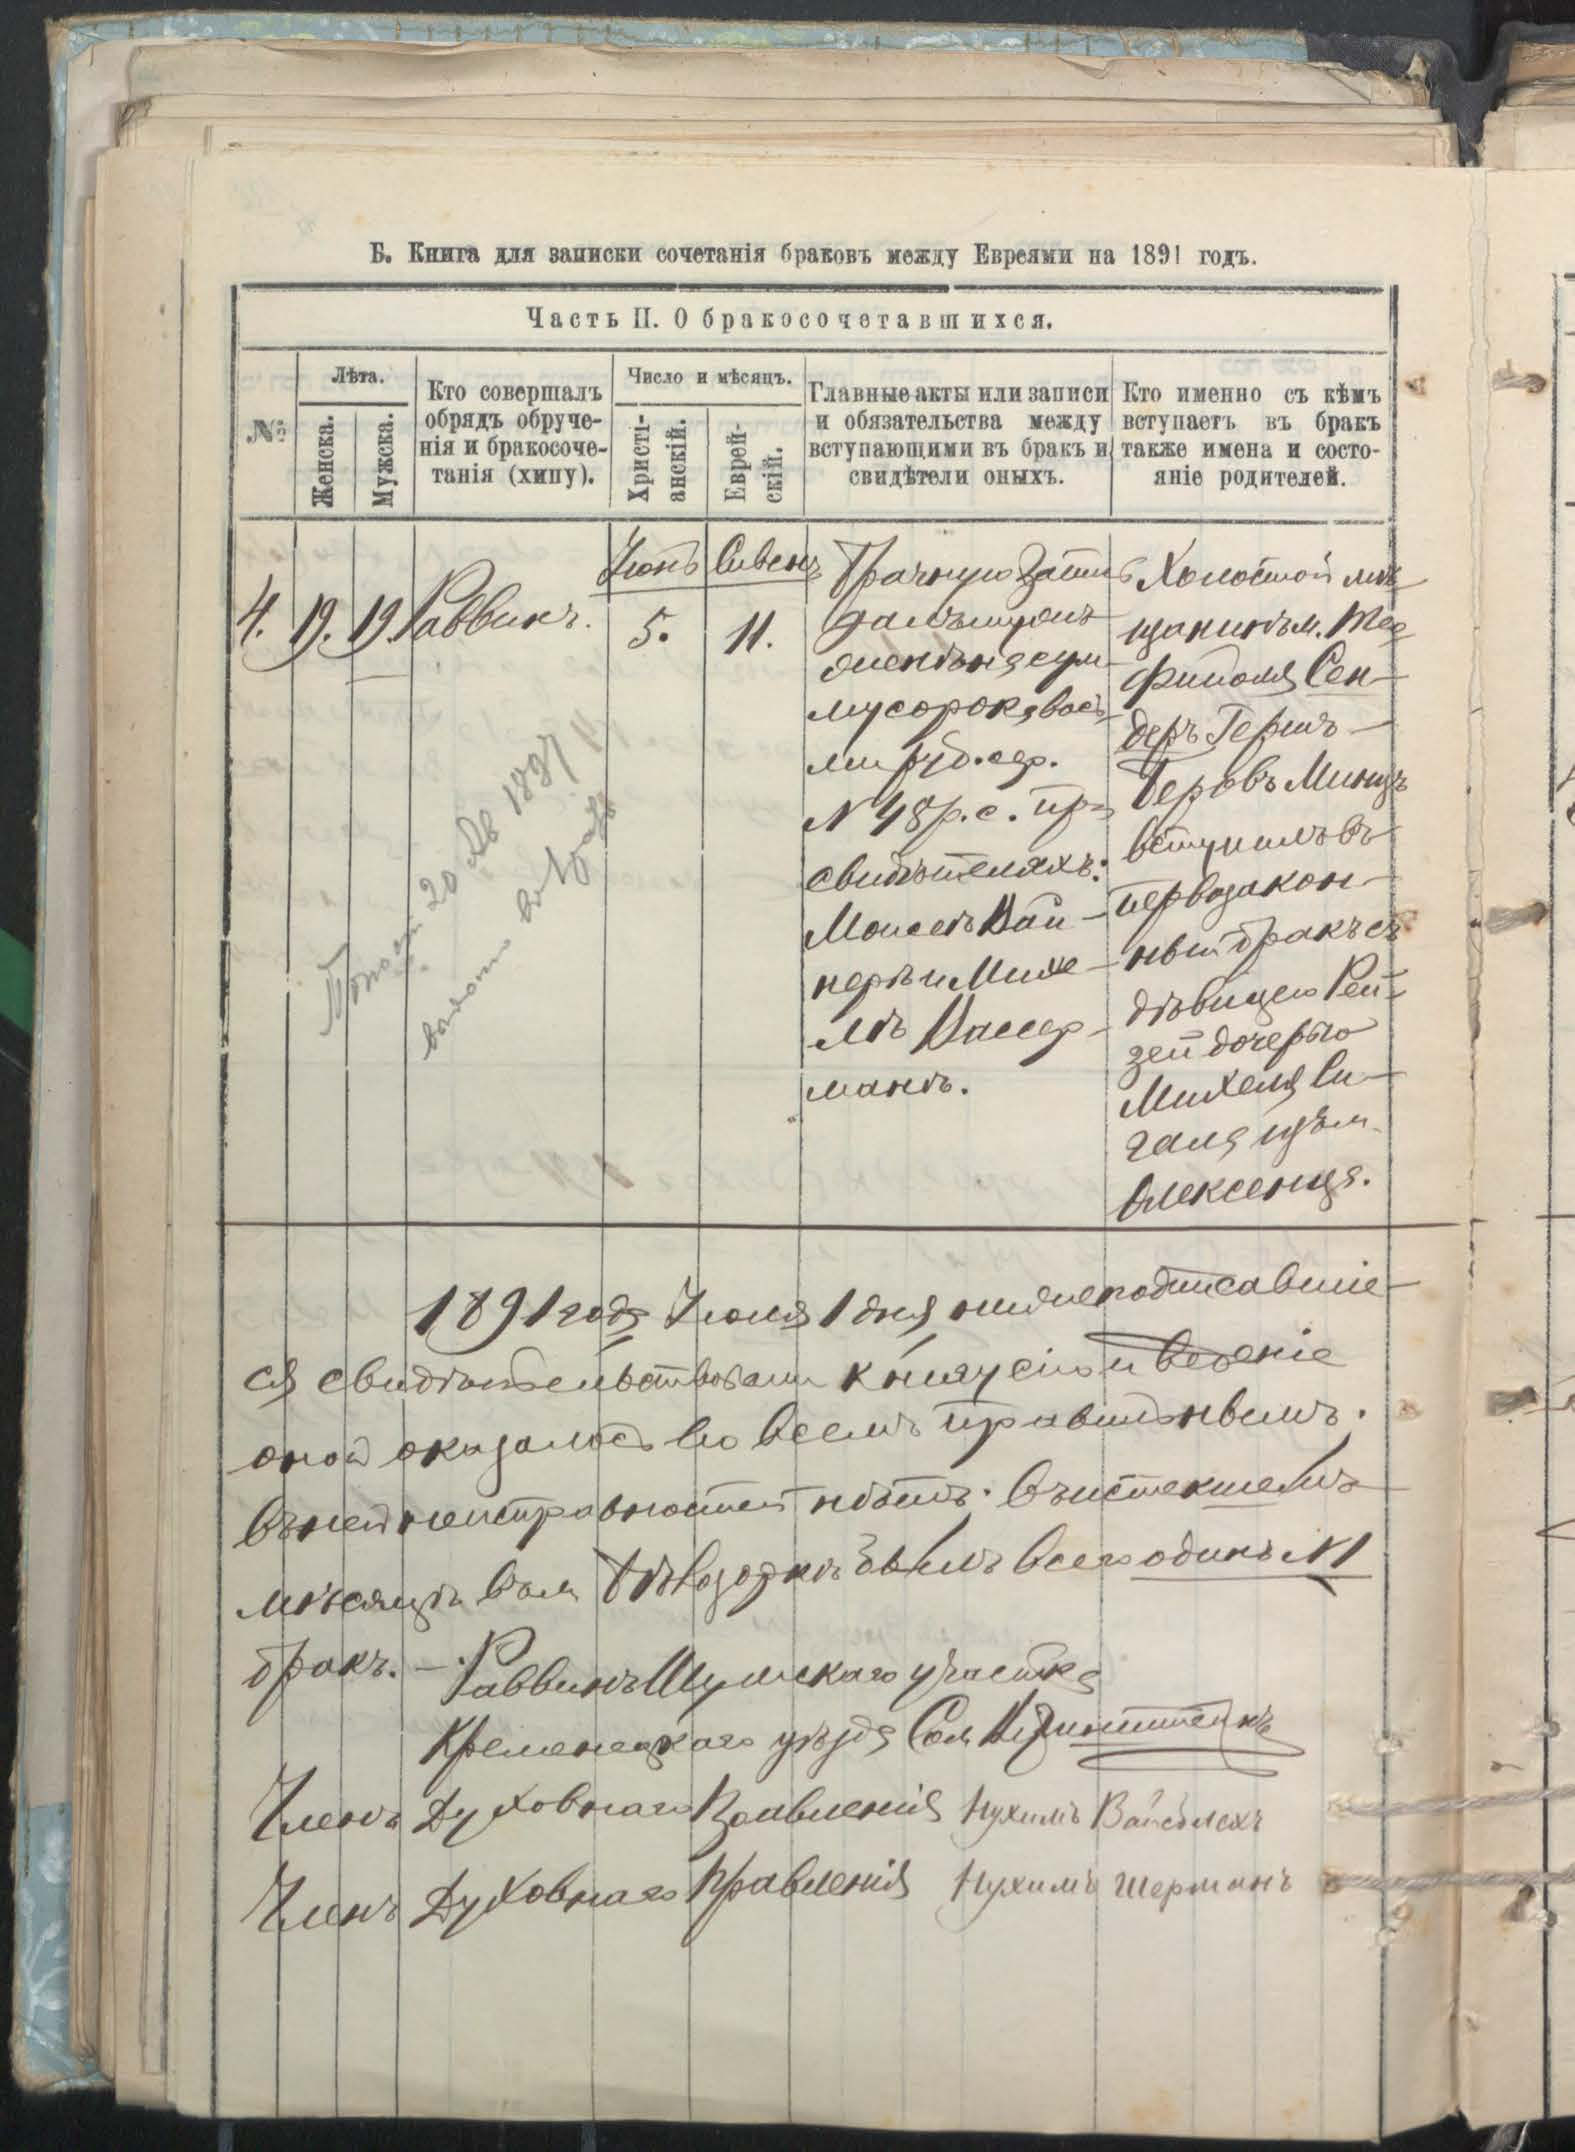 Б. Книга для записки сочетанія браковъ между Евреями на 1891 годъ.
Часть II. О бракосочетавшихся.
№
Лѣта.
Женска.
Мужска.
Кто совершалъ
обрядъ обруче-
нія и бракосоче-
танія (хипу).
Число и мѣсяцъ.
Христі-
анскій.
Еврей-
скій.
Главные акты или записи
и обязательства между
вступающими въ бракъ и
свидѣтели оныхъ.
Кто именно съ кѣмъ
вступаетъ въ бракъ
также имена и состо-
яніе родителей.
4.
19.
19.
Раввинъ.
Іюнь
5.
Сивенъ
11.
Брачную запись
далъ мужъ
женѣ на сум-
му сорокъ вось-
ми руб. сер.
№ 48 р. с. при
свидѣтеляхъ:
Моисеѣ Вай-
нерѣ и Михе-
лѣ Вассер-
манѣ.
Холостой мѣ-
щанинъ м.
Сен-
деръ Герш-
Беровъ Минцъ
вступилъ въ
первозакон-
ный бракъ съ
дѣвицею Рей-
зей дочерью
Михеля Си-
галя изъ м.
Олексенца.
20 1897
1891 года Іюля 1 дня нижеподписавшіе-
ся свидѣтельствовали книгу сію и веденіе
оной оказалось во всемъ правильнымъ.
въ ней неисправностей нѣтъ. Въ истекшемъ
мѣсяцѣ въ м. Бѣлозоркѣ былъ всего одинъ №1
бракъ. — Раввинъ Шумскаго участка
Кременецкаго уѣзда
Членъ Духовнаго Правленія Нухимъ Вайсблехъ
Членъ Духовнаго Правленія Нухимъ Шерманъ